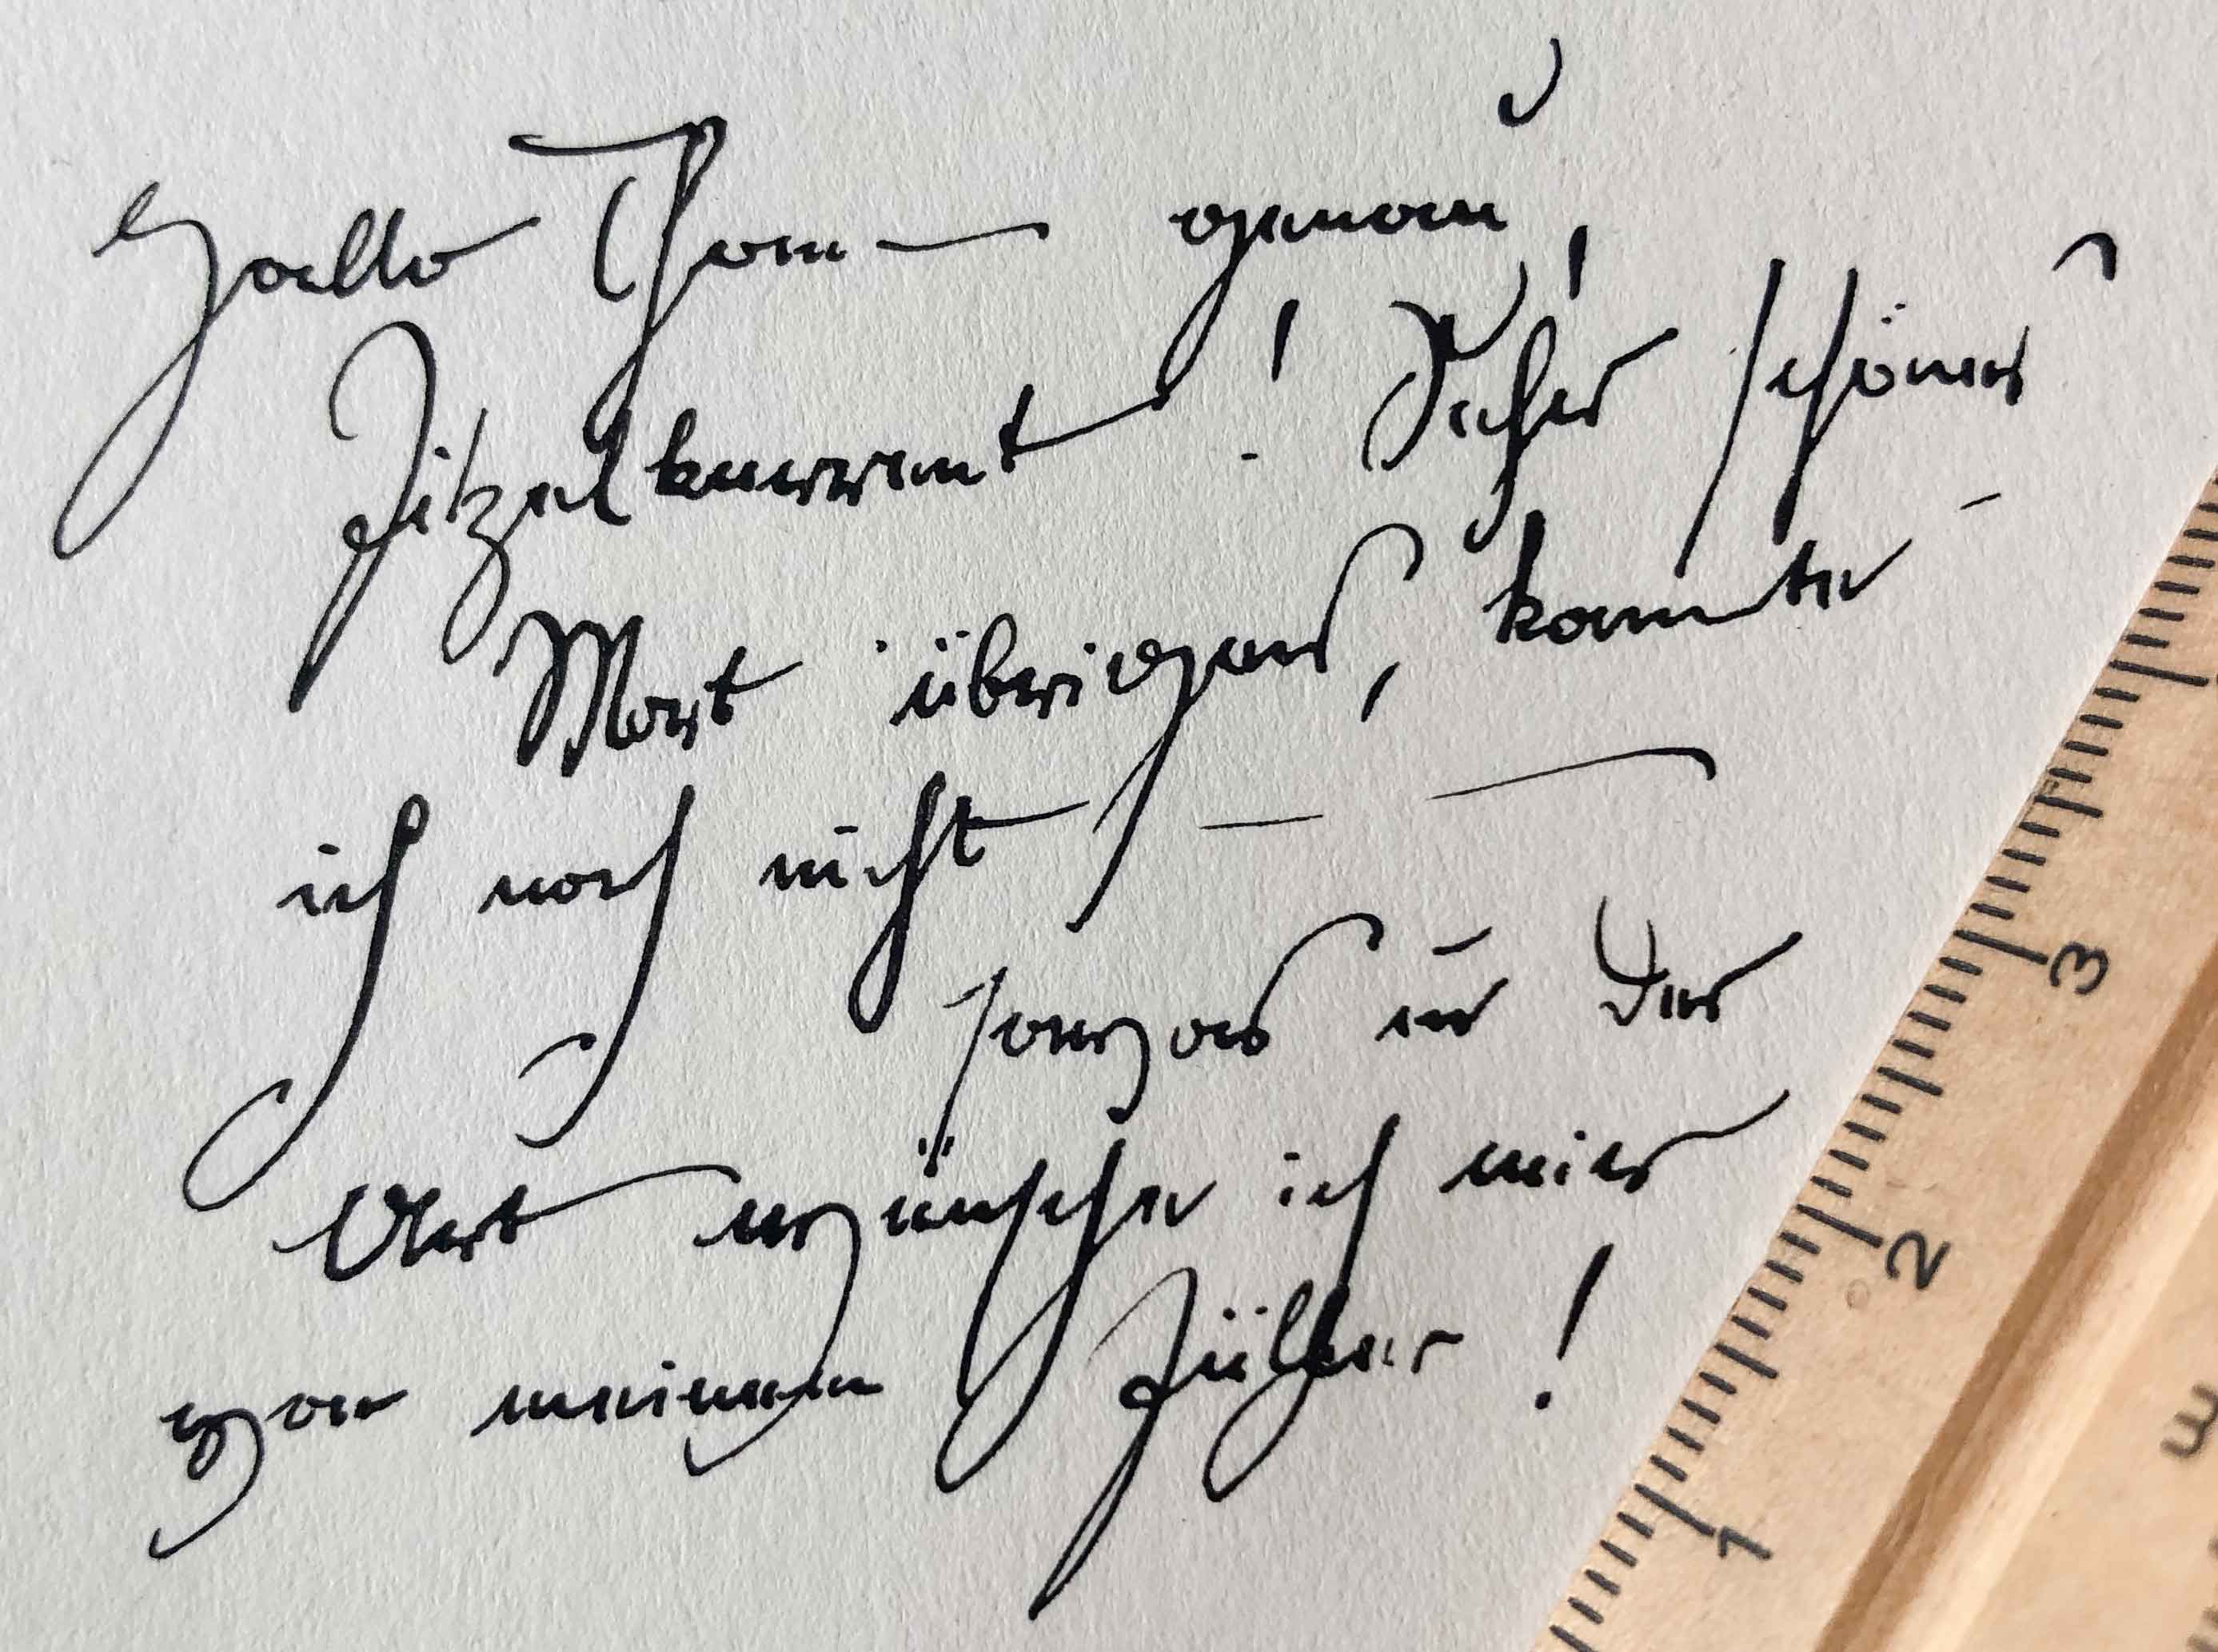 Hallo Thom — genau,
Fitzelkurrent! Sehr schönes
Wort übrigens, kannte
ich noch nicht —
sowas in der
Art wünsche ich mir
von meinem Füller!
3
2
1
3